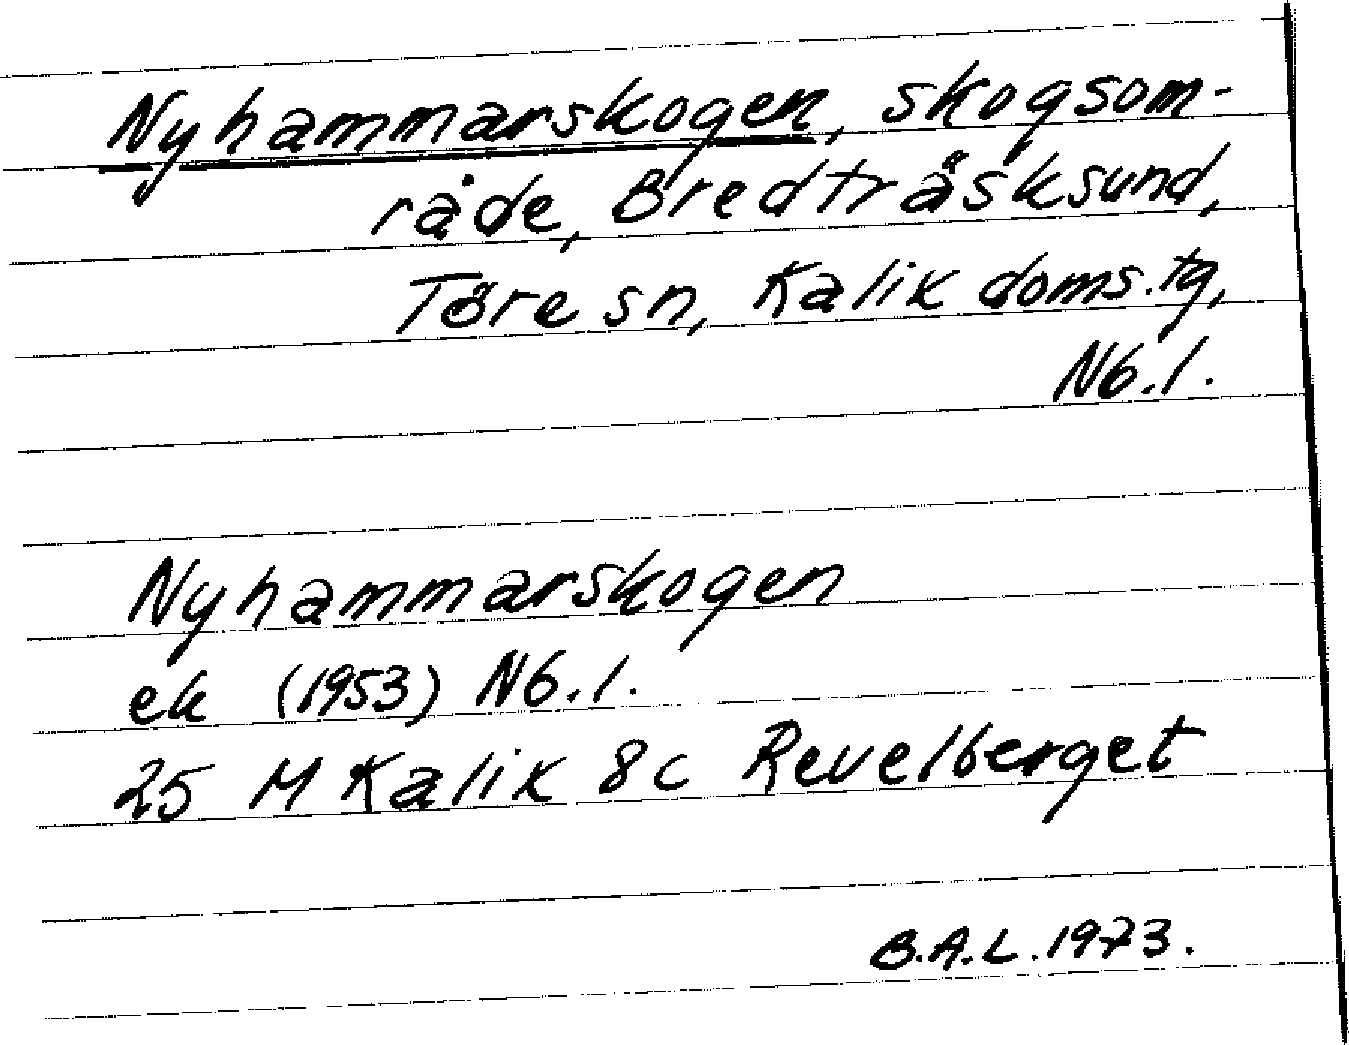 Nyhammarskogen, skogsom-
råde, Bredträsksund,
Töre sn, Kalix doms.tg,
Nb.l.
Nyhammarskogen
ek (1953) Nb.l.
25 M Kalix 8c Revelberget
B.A.L. 1973.